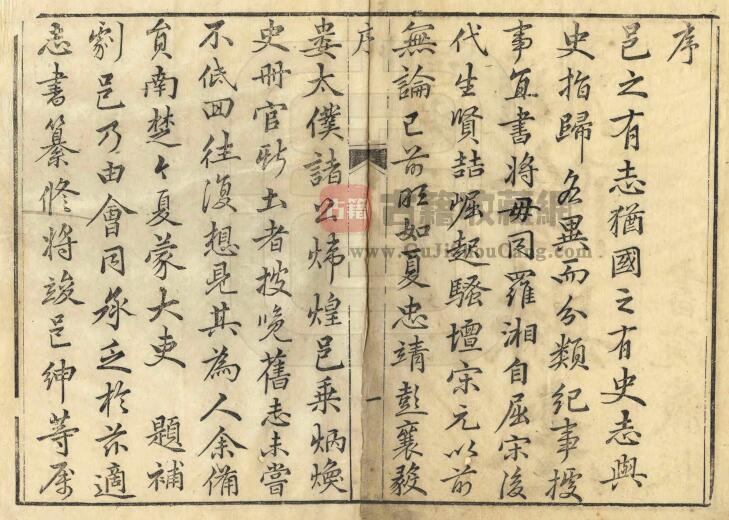 序
邑之有志猶國之有史志與
史指歸各異而分類紀事援
事直書將毋同羅湘自屈宋後
代生賢喆崛起騷壇宋元以前
無論已前明如夏忠靖彭襄毅
序
一
婁太僕諸公炜煌邑乗炳煥
史冊官斯土者披覽舊志未嘗
不低回往復想見其為人余備
員南楚々夏蒙大吏 題補
劇邑乃由會同承乏於茲適
志書纂修將竣邑紳等屬
古籍收藏網
www.GuJiShouCang.com